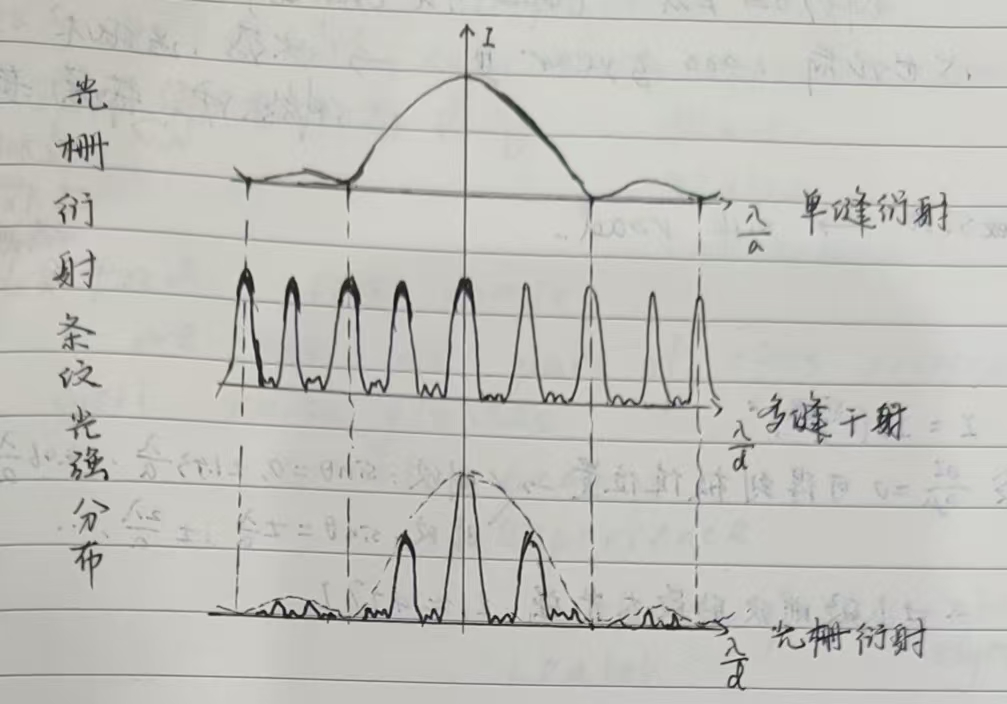 光栅衍射条纹光强分布
I
λ/a 单缝衍射
λ/d 多缝干射
λ/d 光栅衍射